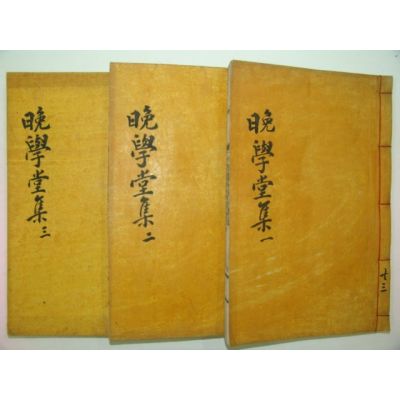 晩學堂集一
晩學堂集二
晩學堂集三